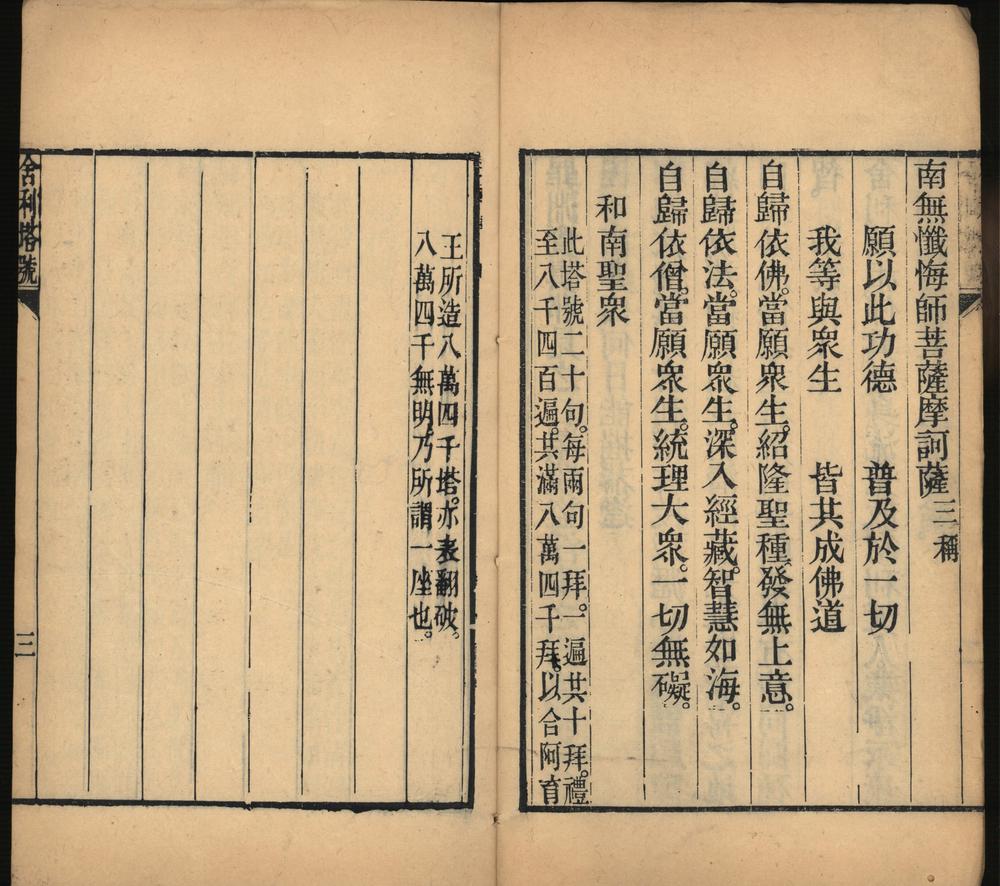 南無懺悔師菩薩摩訶薩三稱
願以此功德　普及於一切
我等與衆生　皆共成佛道
自歸依佛。當願衆生。紹隆聖種。發無上意。
自歸依法。當願衆生。深入經藏。智慧如海。
自歸依僧。當願衆生。統理大衆。一切無礙。
和南聖衆
此塔號二十句。每兩句一拜。一遍共十拜。禮
至八千四百遍。共滿八萬四千拜。以合阿育
王所造八萬四千塔。亦表翻破。
八萬四千無明。乃所謂一座也。
舍利塔號
三